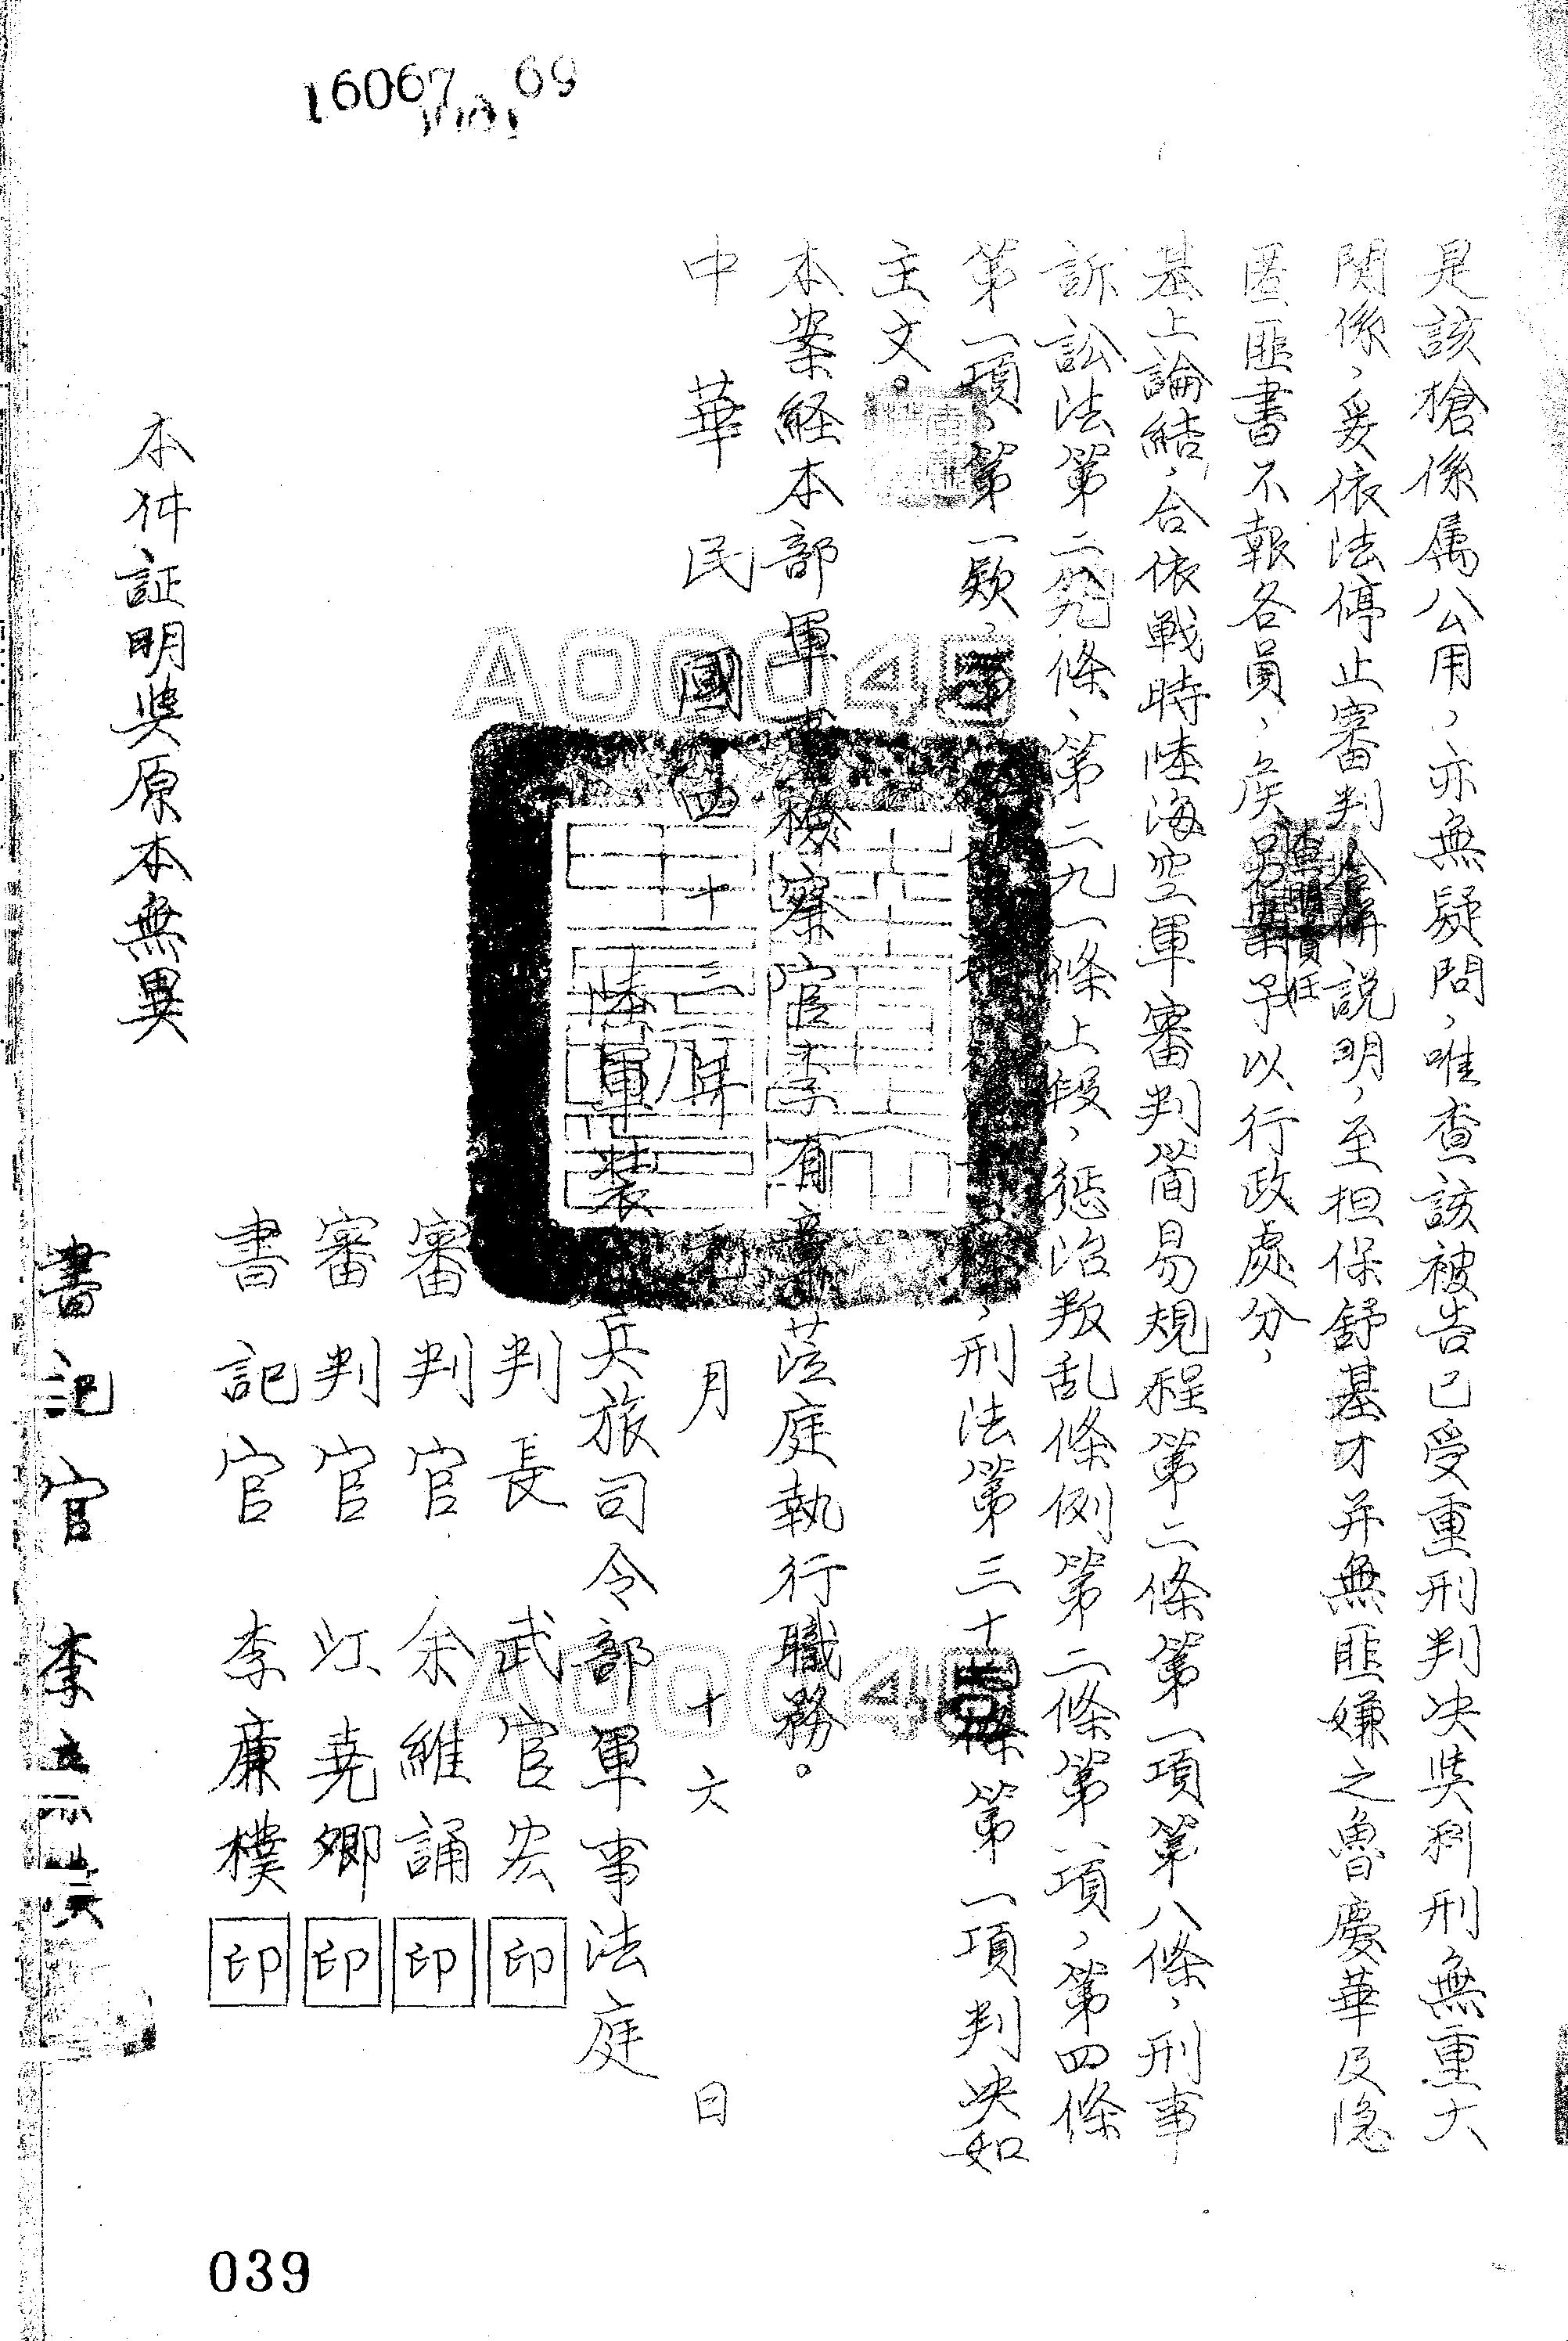 16067 69
是該槍係屬公用，亦無疑問，唯查該被告已受重刑判決與科刑無重大
関係，爰依法停止審判合併説明，至担保舒基才并無匪嫌之魯慶華及隐
匿匪書不報各員，俟另案予以行政處分，
基上論結，合依戰時陸海空軍審判簡易規程第二條第一項第八條，刑事
訴訟法第二九條、第二九一條上段，惩治叛乱條例第二條第一項，第四條
第一項，第一款，刑法第三十條第一項判決如
主文。
本案経本部軍事檢察官李有章蒞庭執行職務。
中華民國四十三年元月十六日
陸軍装兵旅司令部軍事法庭
判長 武官宏 印
審判官 余維誦 印
審判官 江堯卿 印
書記官 李廉樸 印
本件証明與原本無異
書記官 李
A00045
A00045
039